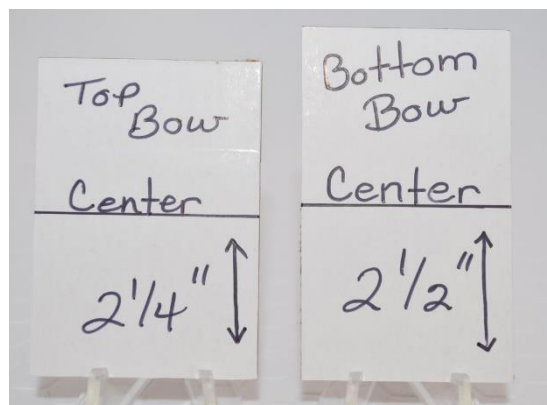 Top
Bow
Center
2 1/4"
Bottom
Bow
Center
2 1/2"